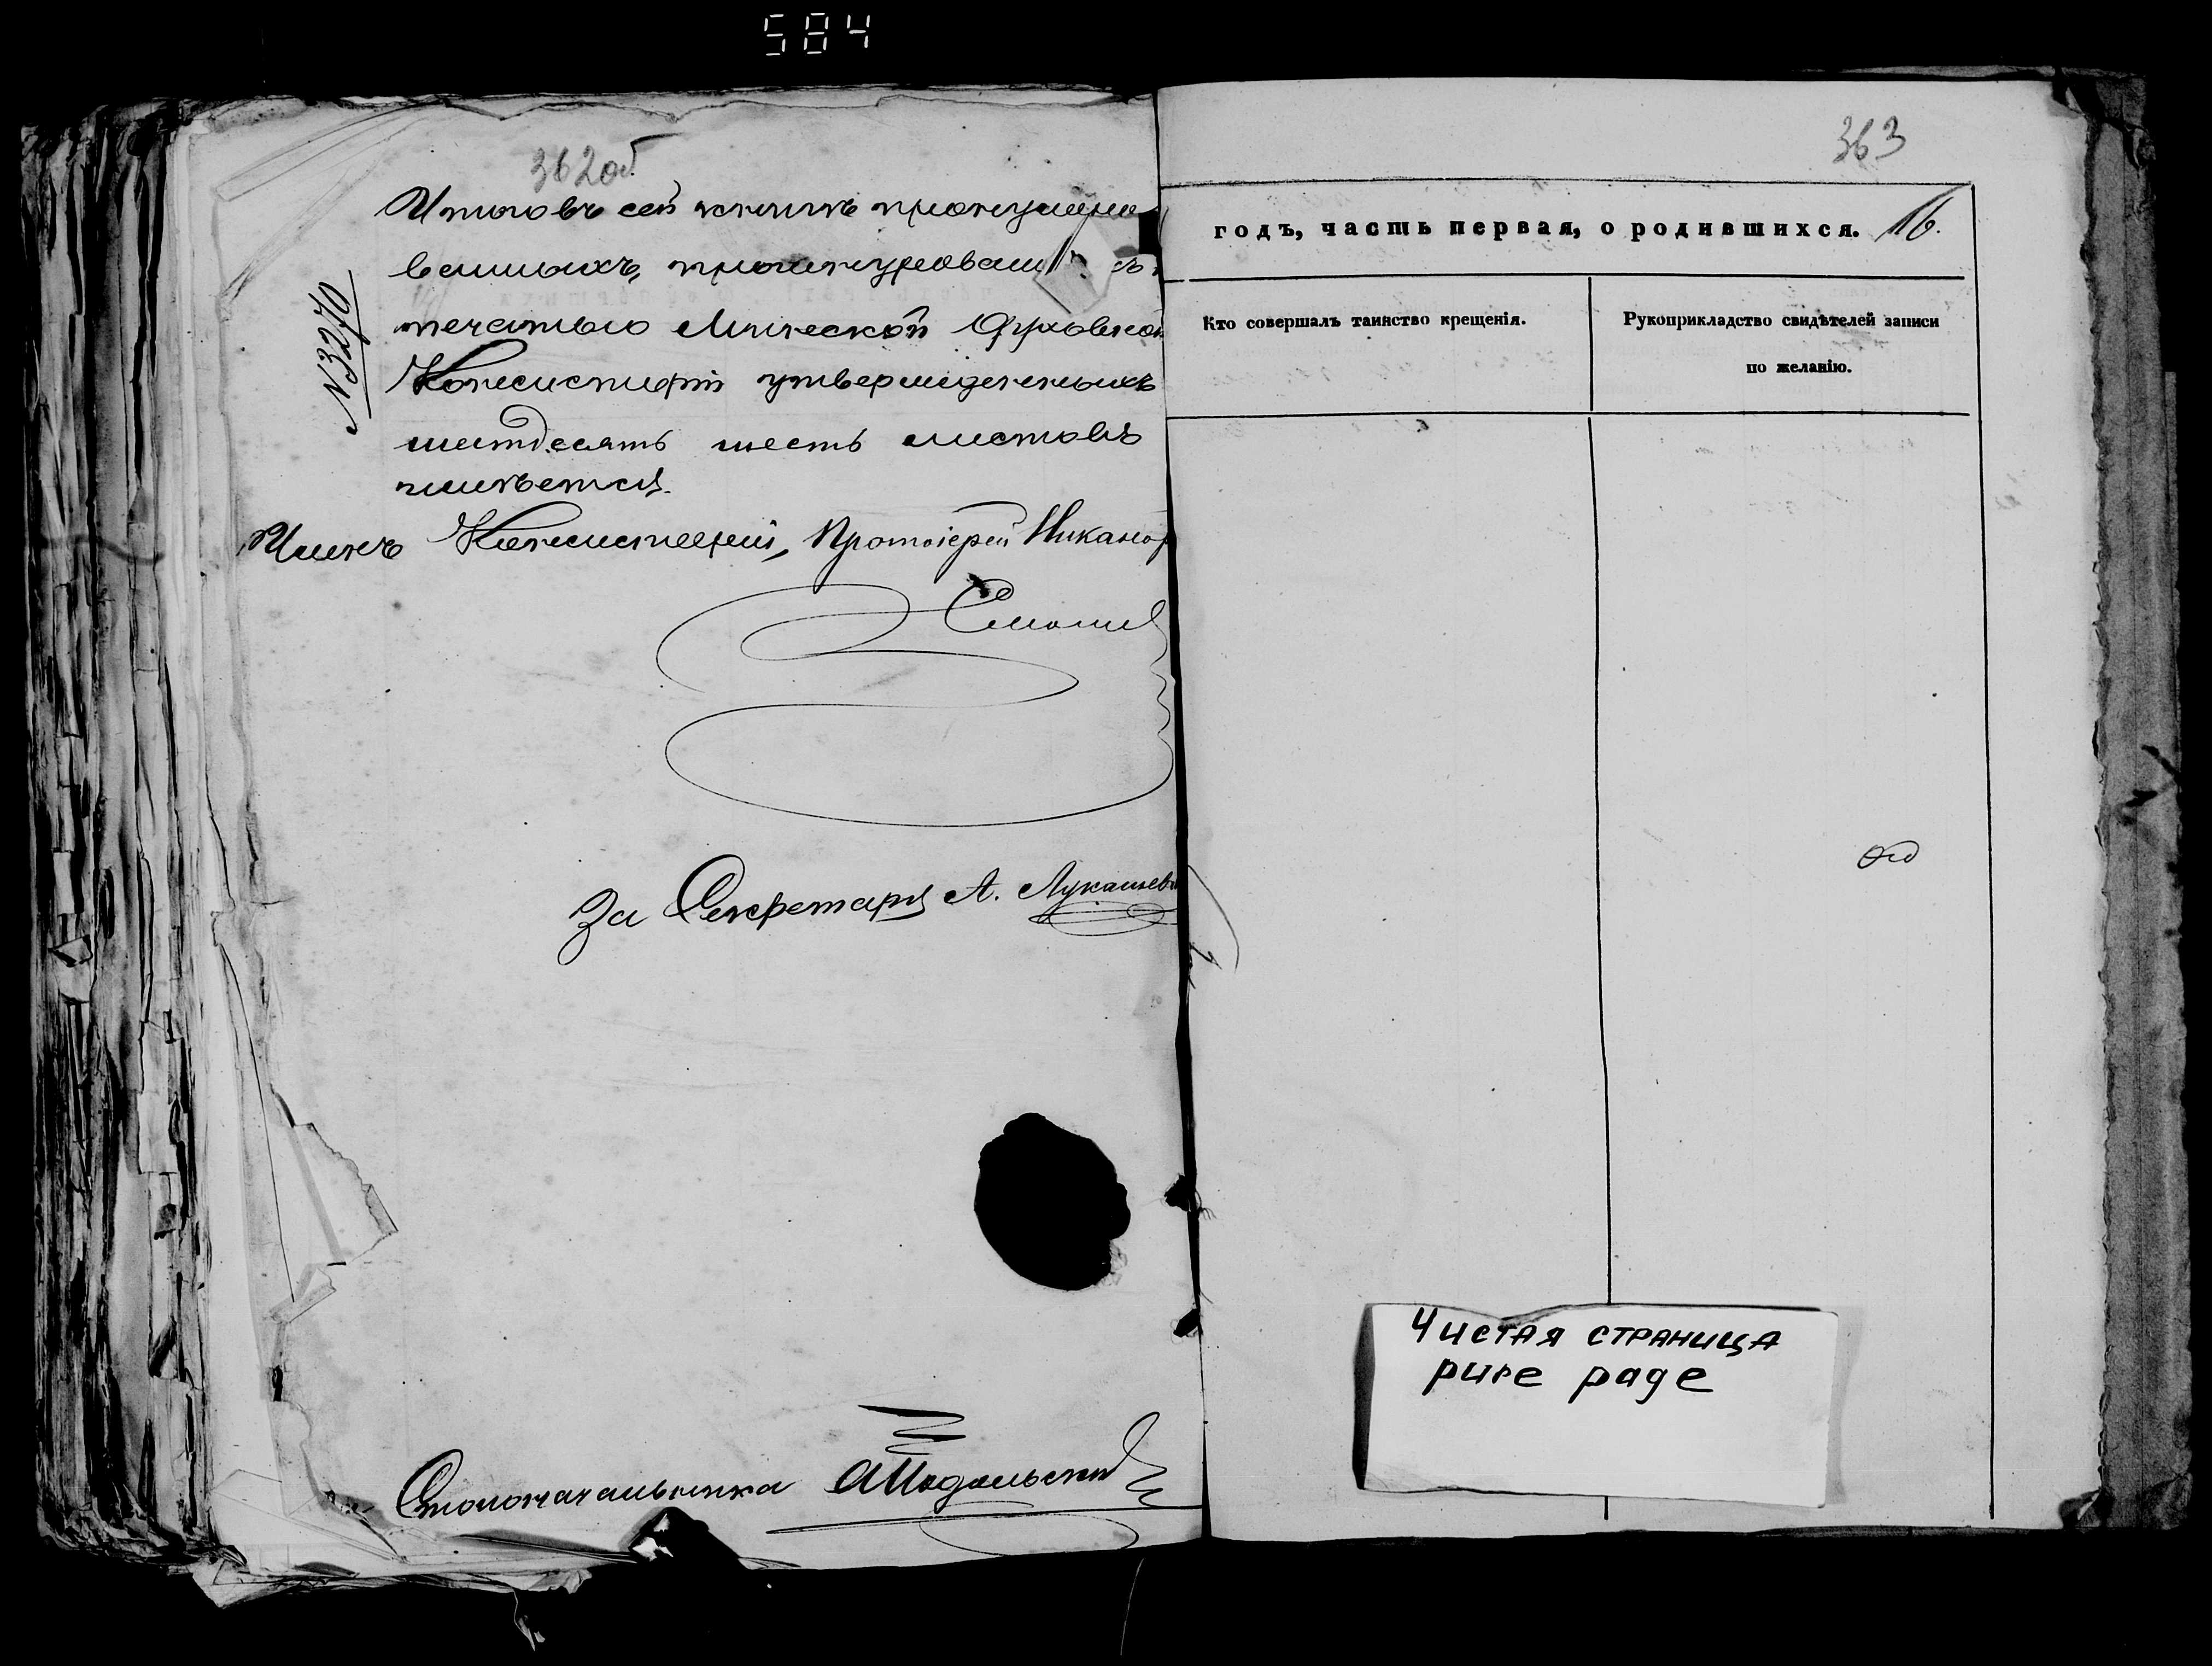 584
362об
Итого въ сей книгѣ пронумеро
ванныхъ, прошнурован съ
печатью Минской Духовной
Консисторіи утвержденныхъ
шестдесятъ шесть листовъ
имѣется.
№3270
Членъ Консисторіи, Протоіерей Никанор
Смолич
За Секретаря А. Лукашеви
Столоначальника А Подольскій
363
годъ, часть первая, о родившихся. 16.
Кто совершалъ таинство крещенія.
Рукоприкладство свидѣтелей записи
по желанію.
Чистая страница
pure page